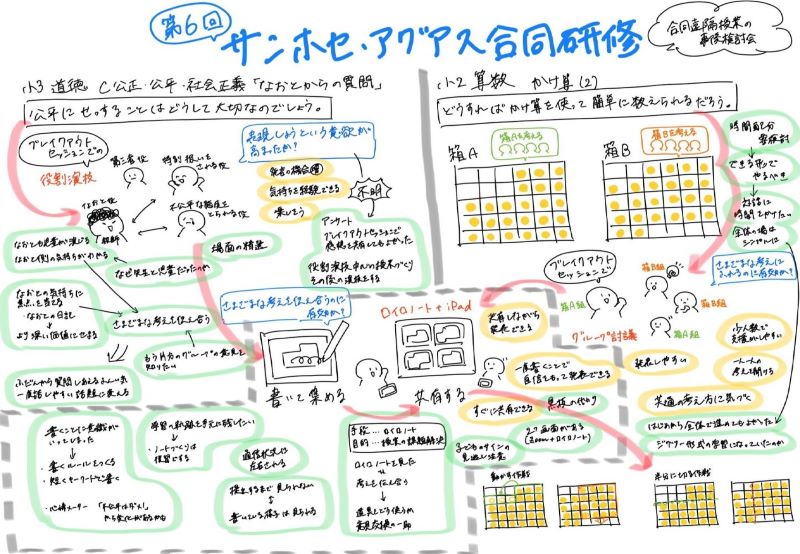 第6回
サンホセ・アグアス合同研修
合同遠隔授業の
事後検討会
小3 道徳 C公正・公平・社会正義「なおとからの質問」
公平にせっすることはどうして大切なのでしょう。
ブレイクアウト
セッションでの
役割演技
第三者役
特別扱いを
される役
なおと役
不公平な態度を
とられる役
なおとも児童が演じる
なおと側の気持ちがわかる
なぜ先生と児童だったのか
なおとの気持ちに
焦点を当てる
・なおとの日記
→より深い価値にせまる
さまざまな考えを伝え合う
もう片方のグループの意見も
知りたい
ふだんから質問しあえるよい気
一度話しやすい話題に変える
表現しようという意欲が
高まったか?
発言の機会増
気持ちを経験できる
楽しそう
不明
アンケート
ブレイクアウトセッションで
感想を共有してもよかった
場面の精選
役割演技中心の授業づくり
その後の議論をする
さまざまな考えを伝え合うのに
有効か?
書いて集める
ロイロノート+iPad
共有する
共有しながら
発表できる
一度書くことで
自信をもって発表できる
すぐに共有できる
黒板の代わり
2つ画面が見える
(Zoom+ロイロノート)
子どものサインの
見逃しに注意
書くことに意識が
いってしまった
・書くルールをつくる
・短くキーワードで書く
・心情メーター
学習の軌跡を手元に残したい
・ノートづくりは
復習でする
通信状況に
左右される
提出するまで見られない
書いている様子は見られる
手段…ロイロノート
目的…授業の課題解決
ロイロノートを見た
考えを伝え合う
道具としてどう使うか
意見交換の一部
小2 算数 かけ算(2)
どうすればかけ算を使って簡単に数えられるだろう。
箱A
箱Aを考える
箱B
箱Bを考える
時間配分
要検討
できる形で
やるべき
対話に
時間をかけたい
全体の場は
シンプルに
ブレイクアウト
セッションで
箱A組
箱B組
箱A組
箱B組
グループ討議
さまざまな考えに
ふれるのに有効か?
少人数で
支援がしやすい
発表しやすい
一人一人の
考えを聞ける
共通の考え方に気づく
はじめから全体で進めてもよかった
ジグソー形式の学習になっていたのか
動かす作戦
半分にする作戦